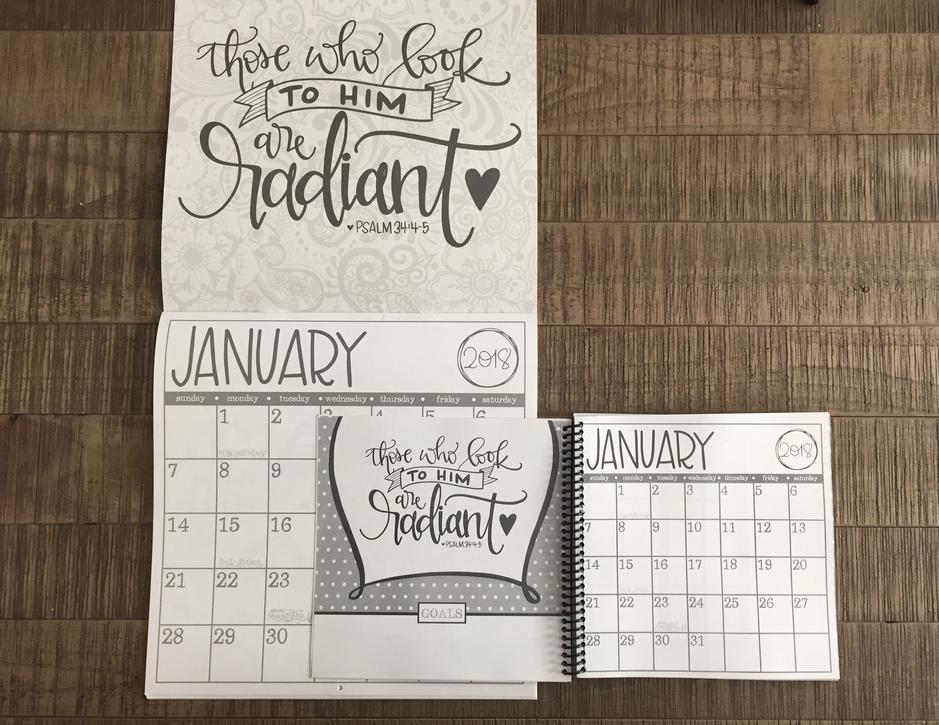 those who look
TO HIM
are
radiant
PSALM 34:4-5
JANUARY 2018
sunday • monday • tuesday • wednesday • thursday • friday • saturday
1 2 3 4 5 6
7 8 9
14 15 16
21 22 23
28 29 30
those who look
TO HIM
are
radiant
PSALM 34:4-5
GOALS
JANUARY 2018
sunday • monday • tuesday • wednesday • thursday • friday • saturday
1 2 3 4 5 6
7 8 9 10 11 12 13
14 15 16 17 18 19 20
21 22 23 24 25 26 27
28 29 30 31